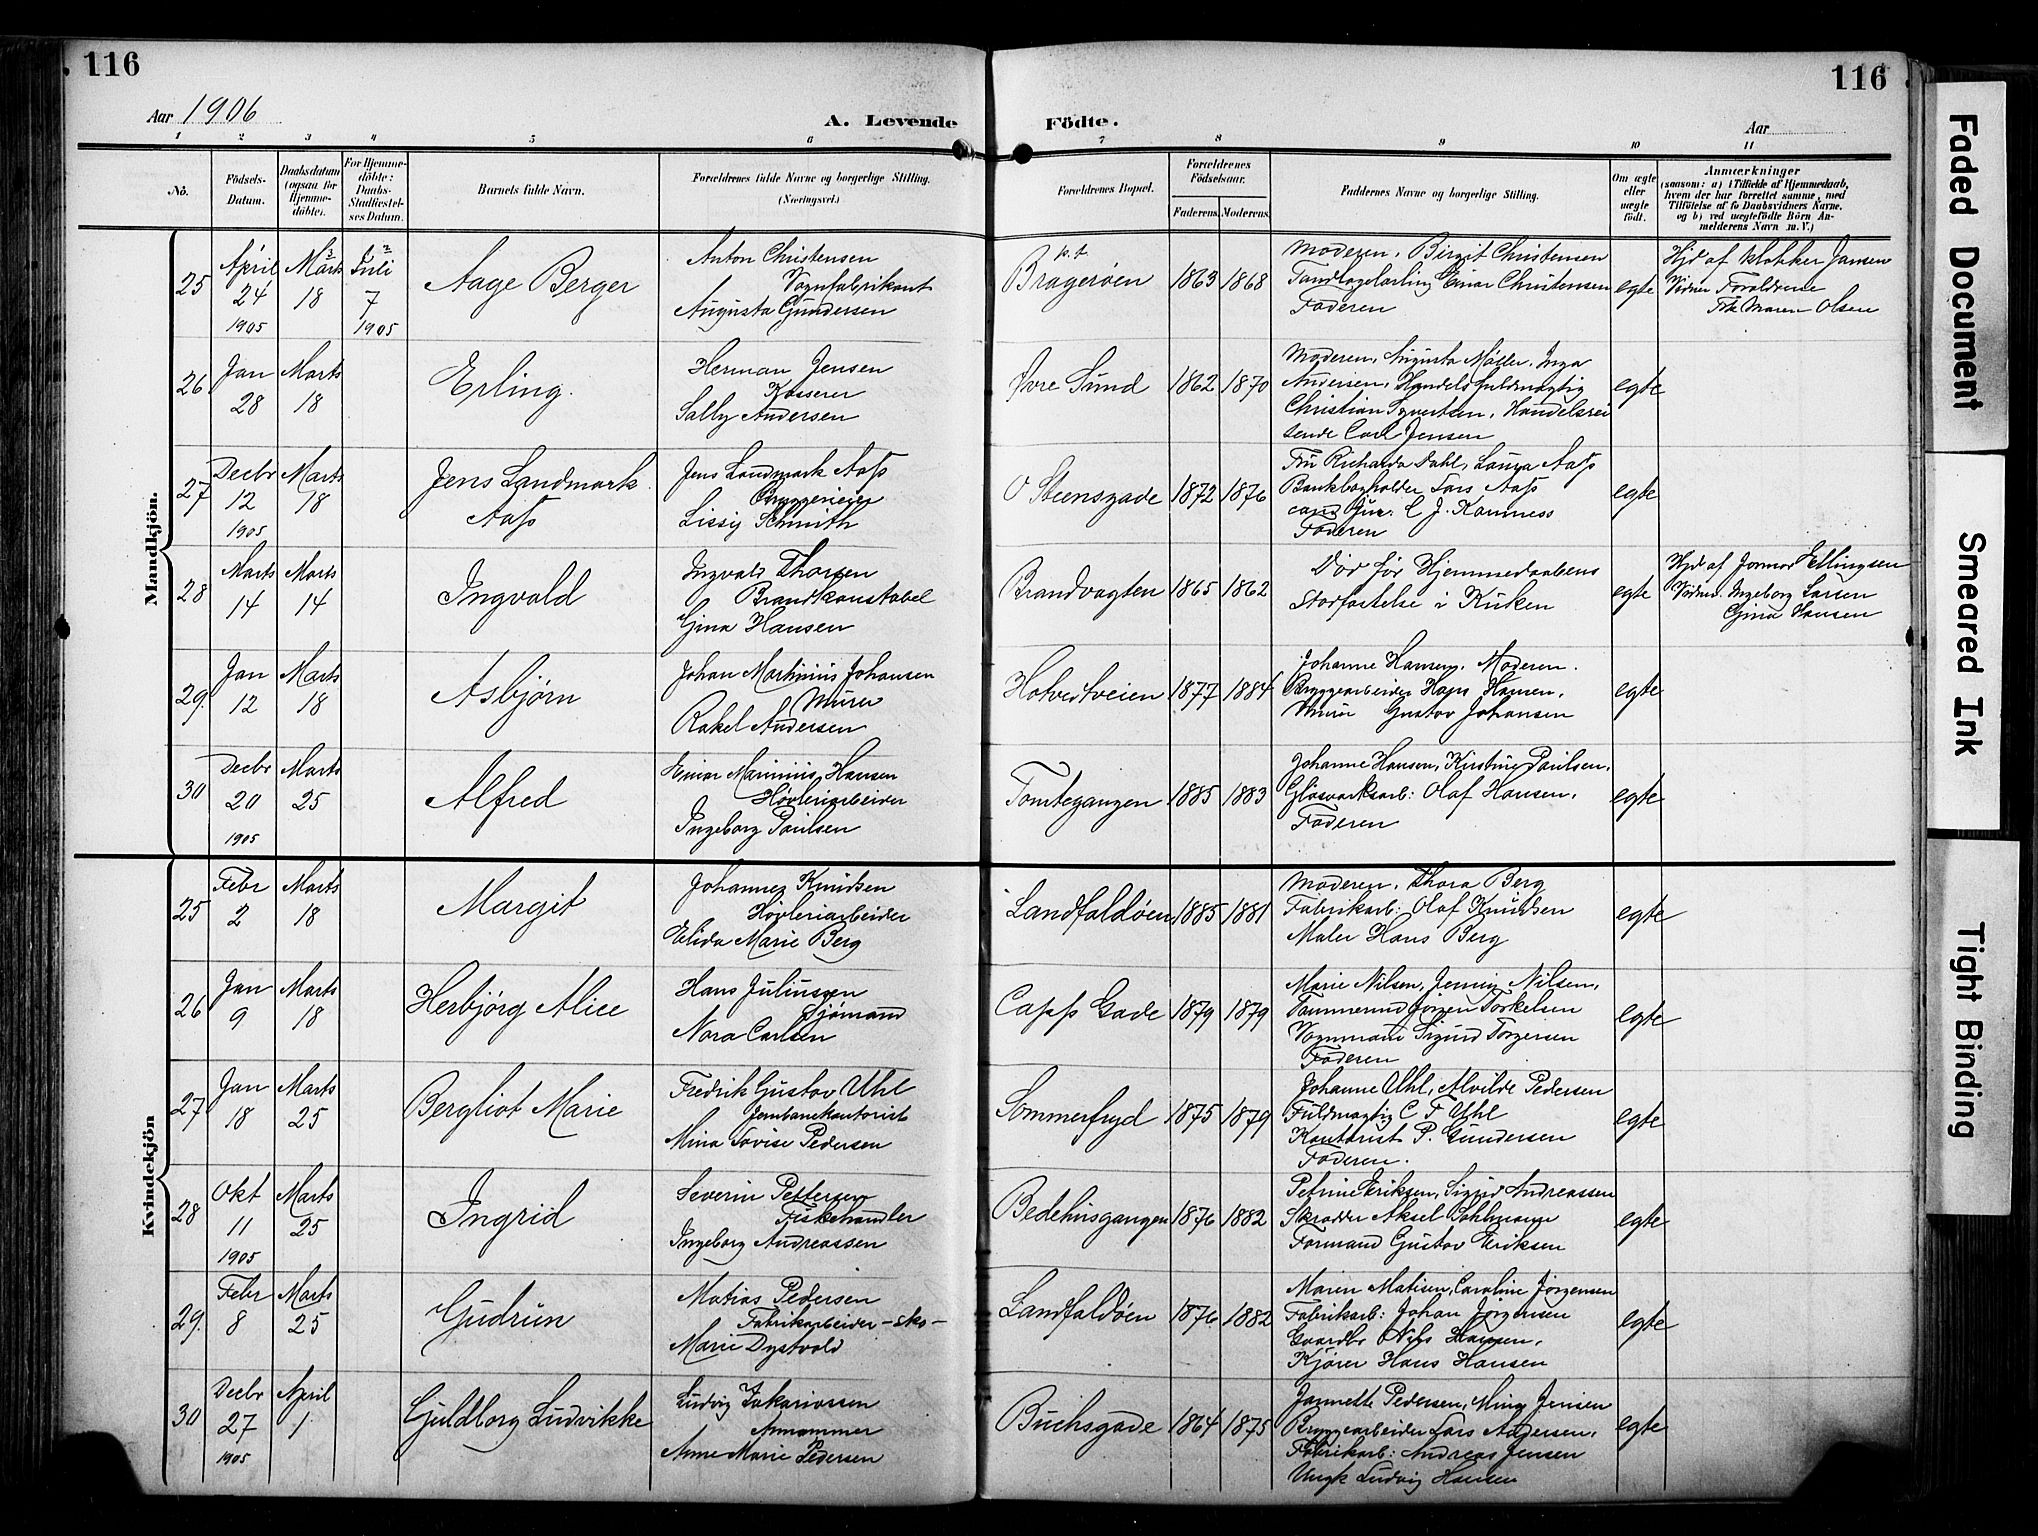 116
116
Aar 1906
A. Levende
Födte.
Aar
1 2 3 4 5 6 7 8 9 10 11
No.
Födsels-Datum.
Daabsdatum (ogsaa for Hjemme-döbte).
For Hjemme-döbte: Daabs-Stadfæstel-ses Datum.
Barnets fulde Navn.
Forældrenes fulde Navne og borgerlige Stilling.
(Næringsvei.)
Forældrenes Bopæl.
Forældrenes Födselsaar.
Faderens. Moderens.
Faddernes Navne og borgerlige Stilling.
Om ægte eller uægte födt.
Anmærkninger
(saasom: a) i Tilfælde af Hjemmedaab,
hvem der har forrettet samme, med
Tilföielse af to Daabsvidners Navne.
og b) ved uægtefödte Börn An-
melderens Navn m. V.)
Mandkjön.
25
April 24 1905
Marts 18
Juli 7 1905
Aage Berger
Anton Christensen
Vognfabrikant
Augusta Gundersen
p.t.
Bragerøen
1863 1868
Moderen, Birgit Christensen
Tandlægelærling Einar Christensen
Faderen
egte
Hjd af klokker Jansen
Vidner Forældrene
Frk Maren Olsen
26
Jan 28
Marts 18
Erling.
Herman Jensen
Kasserer
Sally Andersen
Øvre Sund
1862 1870
Moderen, Augusta Møller, Inga
Andersen, Handelsfuldmægtig
Christian Syvertsen, Handelsrei
sende Carl Jensen
egte
27
Decbr 12 1905
Marts 18
Jens Landmark
Aass
Jens Landmark Aass
Bryggerieier
Lissy Schmith
O Steensgade
1872 1876
Fru Richarda Dahl, Laura Aass
Bankbogholder Lars Aass
cand. jur. C J. Hamness
Faderen
egte
28
Marts 14
Marts 14
Ingvald
Ingvald Thorsen
Brandkonstabel
Gina Hansen
Brandvagten
1865 1862
Død før Hjemmedaabens
Stadfæstelse i Kirken
egte
Hjd af Jormor Ellingsen
Vidner. Ingeborg Larsen
Gina Hansen
29.
Jan 12
Marts 18
Asbjørn
Johan Martinius Johansen
Murer
Rakel Andersen
Hotvedtveien
1877 1884
Johanne Hansen, Moderen.
Bryggearbeider Hans Hansen,
Murer Gustav Johansen
egte
30
Decbr 20 1905
Marts 25
Alfred
Einar Marinius Hansen
Høvleriarbeider
Ingeborg Paulsen
Tomtegangen
1885 1883
Johanne Hansen, Kirstine Paulsen,
Glasværksarb: Olaf Hansen,
Faderen
egte
Kvindekjön
25
Febr 2
Marts 18
Margit
Johannes Knudsen
Høvleriarbeider
Elida Marie Berg
Landfaldøen
1885 1881
Moderen, Thora Berg
Fabrikarb: Olaf Knudsen
Maler Hans Berg
egte
26
Jan 9
Marts 18
Herbjørg Alice
Hans Juliussen
Sjømand
Nora Carlsen
Capp Gade
1879 1879
Marie Nilsen, Jenny Nilsen,
Tømmermd Jørgen Torkelsen
Vognmand Sigurd Torgersen
Faderen
egte
27
Jan 18
Marts 25
Bergliot Marie
Fredrik Gustav Uhl
Jernbanekontorist
Mina Lovise Pedersen
Sommerfryd
1875 1879
Johanne Uhl, Alvilde Pedersen
Fuldmægtig C F Uhl
Kontorist P. Gundersen
Faderen.
egte
28
Okt 11 1905
Marts 25
Ingrid
Severin Pettersen
Fiskehandler
Ingeborg Andreassen
Bedehusgangen
1876 1882
Petrine Eriksen, Sigrid Andreassen
Skrædder Aksel Dahlmann
Formand Gustav Eriksen
egte
29.
Febr 8
Marts 25
Gudrun
Matias Pedersen
Fabrikarbeider -sko-
Marie Dystvold
Landfaldøen
1876 1882
Maren Matisen, Caroline Jørgensen
Fabrikarb: Johan Jørgensen
Gaardbr Nils Hansen,
Kjører Hans Hansen
egte
30
Decbr 27 1905
April 1
Guldborg Ludvikke
Ludvig Zakariassen
Annammer
Anne Marie Pedersen
Buchsgade
1864 1875
Jannette Pedersen, Mina Jensen
Bryggearbeider Lars Andersen,
Fabrikarb: Andreas Jensen
Ungk Ludvig Hansen
egte
Faded Document
Smeared Ink
Tight Binding